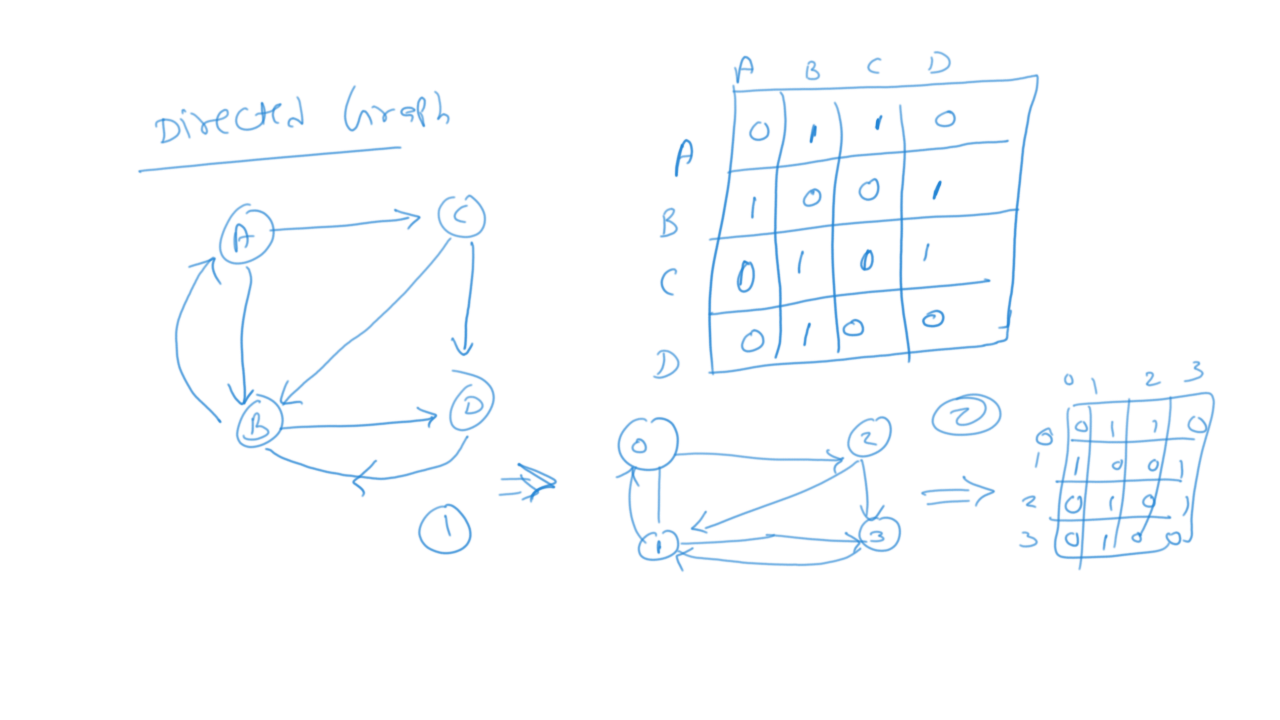 Directed Graph
A C
B D
1
A B C D
A 0 1 1 0
B 1 0 0 1
C 0 1 0 1
D 0 1 0 0
0 2
1 3
2
0 1 2 3
0 0 1 1 0
1 1 0 0 1
2 0 1 0 1
3 0 1 0 0